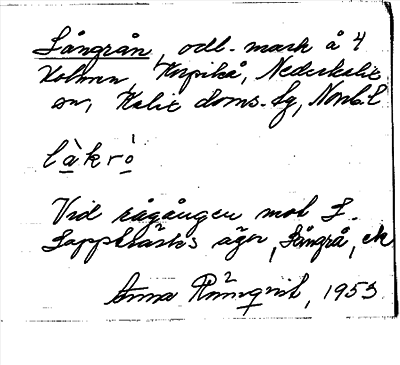 Långrån, odl. mark å 4
Kolmen, Korpikå, Nederkalix
sn, Kalix doms. fg, Norrb. l
l à k r ò
Vid rågången mot L.
Lappträsks ägor, Långrå, ek
Anna Rönnqvist, 1953